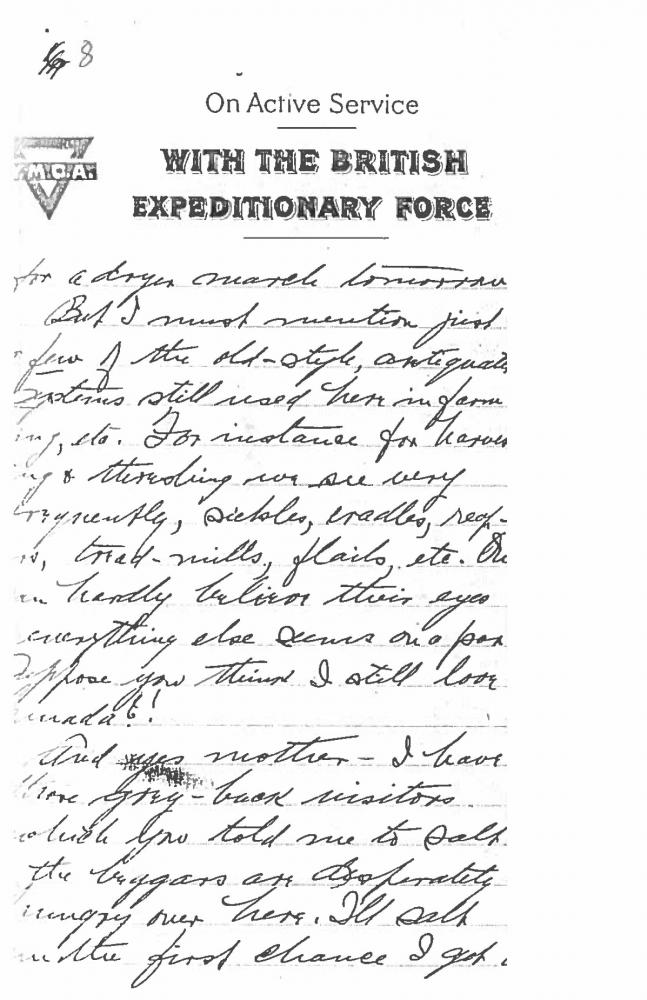 8
On Active Service
WITH THE BRITISH
EXPEDITIONARY FORCE
Y.M.C.A.
for a dryer march tomorrow
But I must mention just
few of the old-style, antiquate
systems still used here in farm
ing, etc. For instance for harves
ng & threshing we see very
frequently, sickles, cradles, reap-
rs, tread-mills, flails, etc. One
an hardly believe their eyes
everything else seems on a par
Suppose you think I still love
anada?!
And yes mother - I have
those grey-back visitors
which you told me to salt
the beggars are desperately
hungry over here. I'll salt
the first chance I get